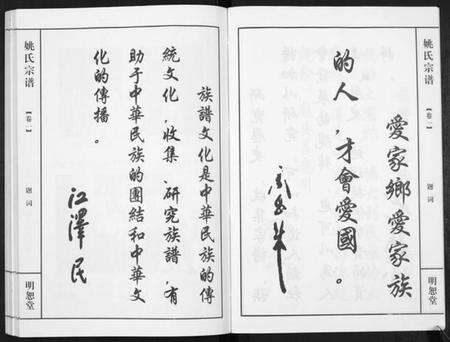 姚氏宗谱
【卷一】
题词
明恕堂
愛家鄉愛家族
的人,才會愛國。
族譜文化是中華民族的傳
統文化,收集、研究族譜,有
助于中華民族的團結和中華文
化的傳播。
江澤民
姚氏宗谱
【卷一】
题词
明恕堂